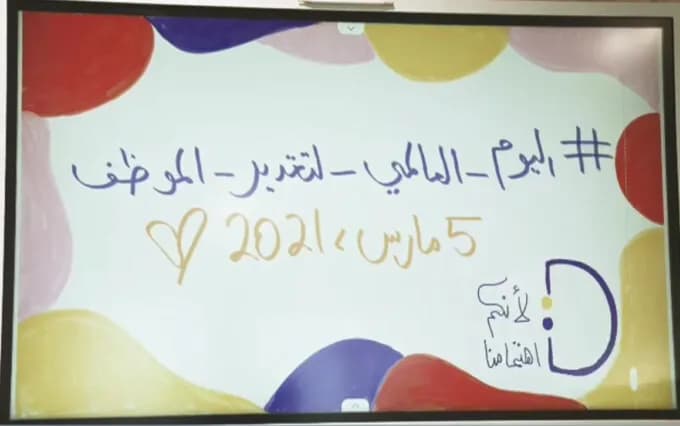 #اليوم_العالمي_لتقدير_الموظف
5 مارس، 2021
لأنكم
اهتمامنا